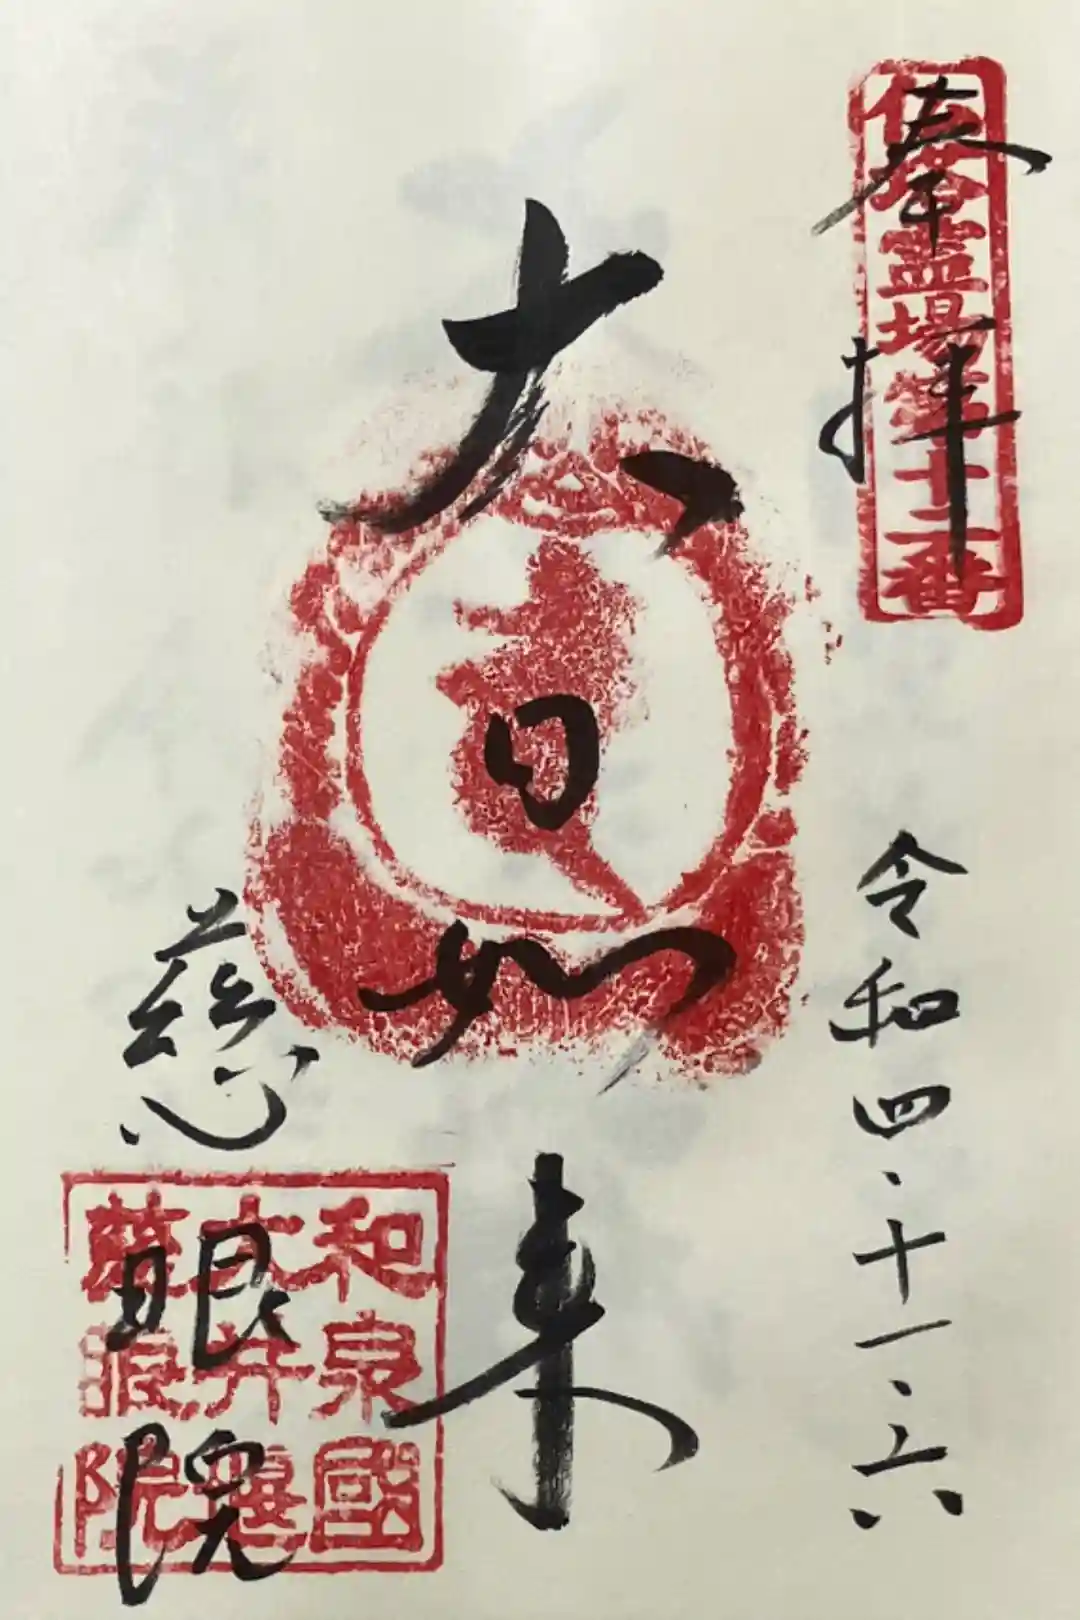 奉拝
仏塔霊場第十二番
令和四、十一、六
大日如来
慈眼院
和泉國
大井堰
慈眼院